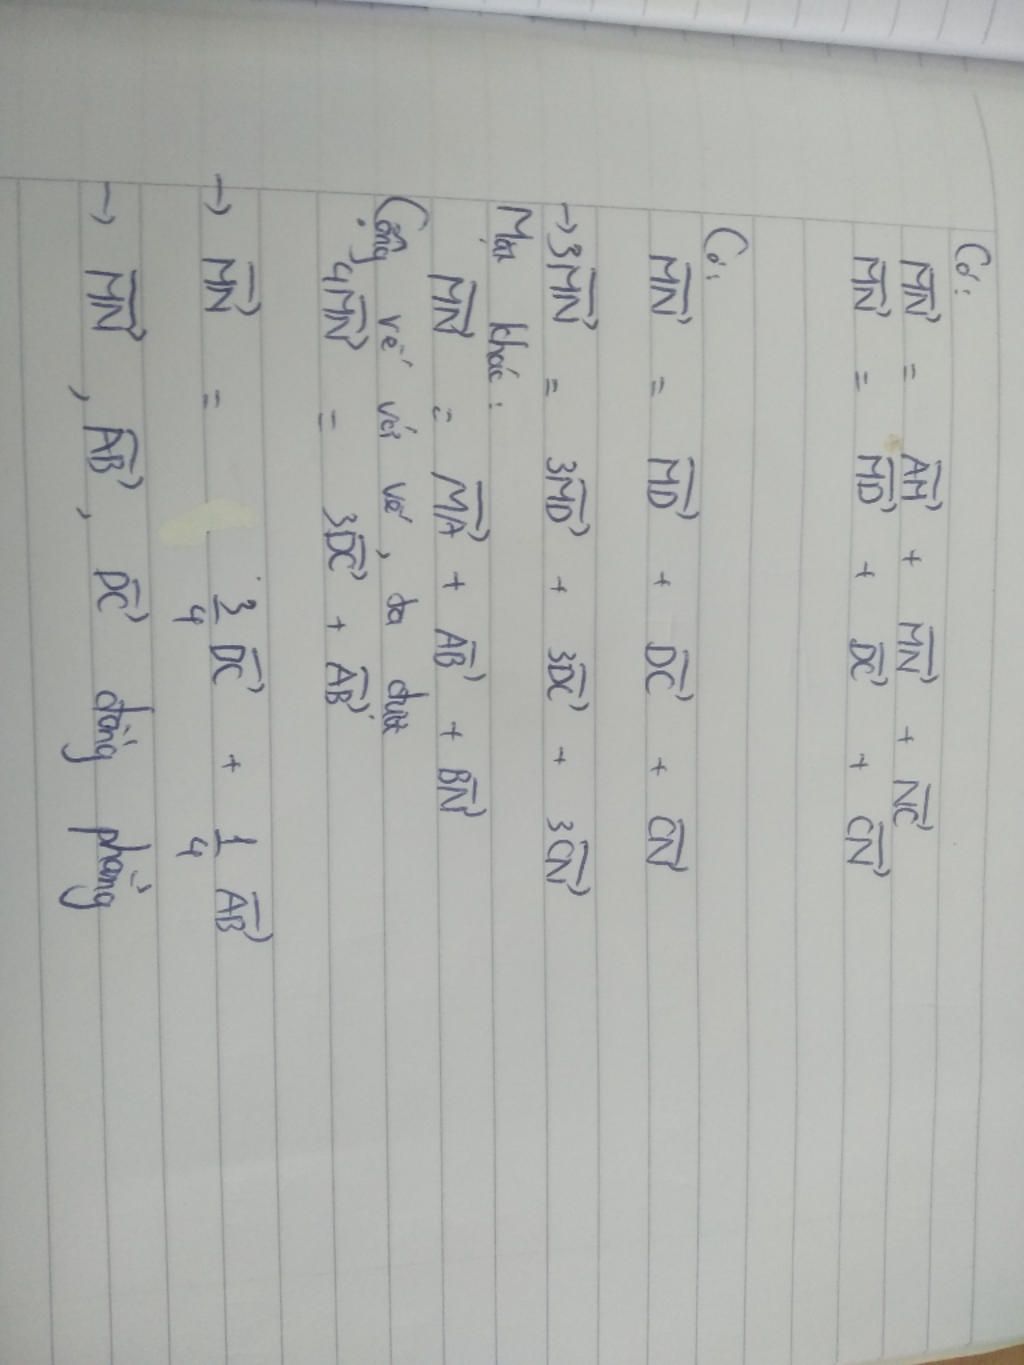 Có:
MN⃗ = AM⃗ + MN⃗ + NC⃗
MN⃗ = MD⃗ + DC⃗ + CN⃗
Có:
MN⃗ = MD⃗ + DC⃗ + CN⃗
→ 3MN⃗ = 3MD⃗ + 3DC⃗ + 3CN⃗
Mặt khác:
MN⃗ = MA⃗ + AB⃗ + BN⃗
Cộng vế với vế, ta được
4MN⃗ = 3DC⃗ + AB⃗
→ MN⃗ = 3/4 DC⃗ + 1/4 AB⃗
→ MN⃗, AB⃗, DC⃗ đồng phẳng